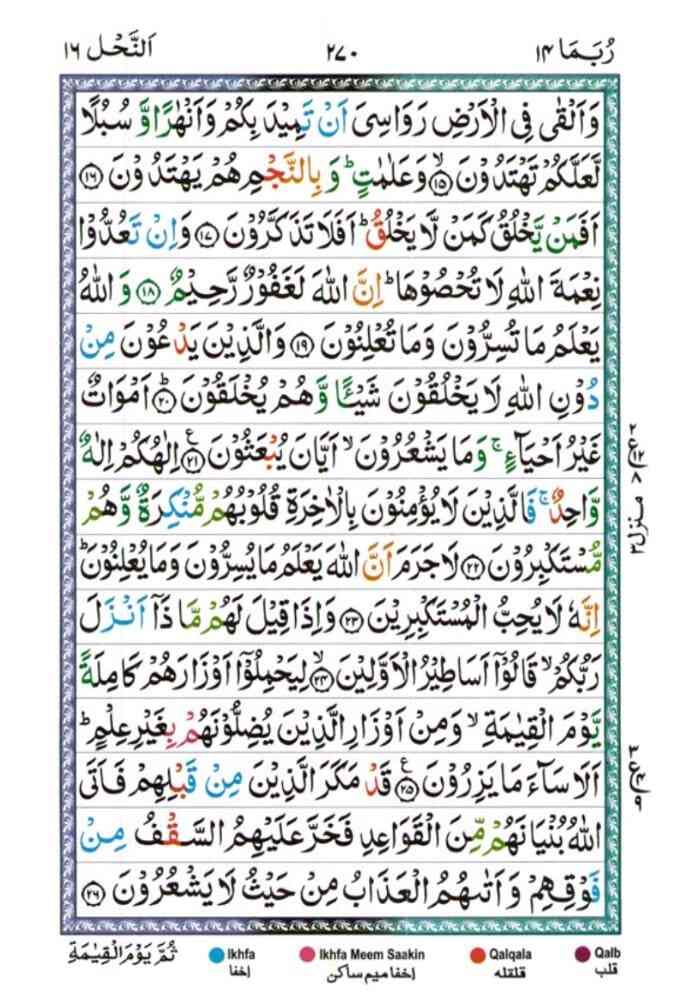 رُبَمَا ۱۴
۲۷۰
اَلنَّحْل ۱۶
وَاَلْقٰى فِى الْاَرْضِ رَوَاسِىَ اَنْ تَمِيْدَ بِكُمْ وَاَنْهٰرًا وَّ سُبُلًا
لَّعَلَّكُمْ تَهْتَدُوْنَ ۙ‏﴿۱۵﴾ وَعَلٰمٰتٍ ؕ وَ بِالنَّجْمِ هُمْ يَهْتَدُوْنَ ﴿۱۶﴾
اَفَمَنْ يَّخْلُقُ كَمَنْ لَّا يَخْلُقُ ؕ اَفَلَا تَذَكَّرُوْنَ ﴿۱۷﴾ وَاِنْ تَعُدُّوْا
نِعْمَةَ اللّٰهِ لَا تُحْصُوْهَا ؕ اِنَّ اللّٰهَ لَغَفُوْرٌ رَّحِيْمٌ ﴿۱۸﴾ وَ اللّٰهُ
يَعْلَمُ مَا تُسِرُّوْنَ وَمَا تُعْلِنُوْنَ ﴿۱۹﴾ وَالَّذِيْنَ يَدْعُوْنَ مِنْ
دُوْنِ اللّٰهِ لَا يَخْلُقُوْنَ شَيْـًٔـا وَّ هُمْ يُخْلَقُوْنَ ؕ﴿۲۰﴾ اَمْوَاتٌ
غَيْرُ اَحْيَآءٍ ۚ وَ مَا يَشْعُرُوْنَ ۙ اَيَّانَ يُبْعَثُوْنَ ﴿۲۱﴾ ع اِلٰهُكُمْ اِلٰهٌ
وَّاحِدٌ ۚ فَالَّذِيْنَ لَا يُؤْمِنُوْنَ بِالْاٰخِرَةِ قُلُوْبُهُمْ مُّنْكِرَةٌ وَّهُمْ
مُّسْتَكْبِرُوْنَ ﴿۲۲﴾ لَا جَرَمَ اَنَّ اللّٰهَ يَعْلَمُ مَا يُسِرُّوْنَ وَمَا يُعْلِنُوْنَ ؕ
اِنَّهٗ لَا يُحِبُّ الْمُسْتَكْبِرِيْنَ ﴿۲۳﴾ وَاِذَا قِيْلَ لَهُمْ مَّا ذَاۤ اَنْزَلَ
رَبُّكُمْ ۙ قَالُوْۤا اَسَاطِيْرُ الْاَوَّلِيْنَ ۙ﴿۲۴﴾ لِيَحْمِلُوْۤا اَوْزَارَهُمْ كَامِلَةً
يَّوْمَ الْقِيٰمَةِ ۙ وَمِنْ اَوْزَارِ الَّذِيْنَ يُضِلُّوْنَهُمْ بِغَيْرِ عِلْمٍ ؕ
اَلَا سَآءَ مَا يَزِرُوْنَ ﴿۲۵﴾ ع قَدْ مَكَرَ الَّذِيْنَ مِنْ قَبْلِهِمْ فَاَتَى
اللّٰهُ بُنْيَانَهُمْ مِّنَ الْقَوَاعِدِ فَخَرَّ عَلَيْهِمُ السَّقْفُ مِنْ
فَوْقِهِمْ وَ اَتٰٮهُمُ الْعَذَابُ مِنْ حَيْثُ لَا يَشْعُرُوْنَ ﴿۲۶﴾
منزل ۳
ثُمَّ يَوْمَ الْقِيٰمَةِ
Ikhfa
اخفا
Ikhfa Meem Saakin
اخفا ميم ساكن
Qalqala
قلقله
Qalb
قلب